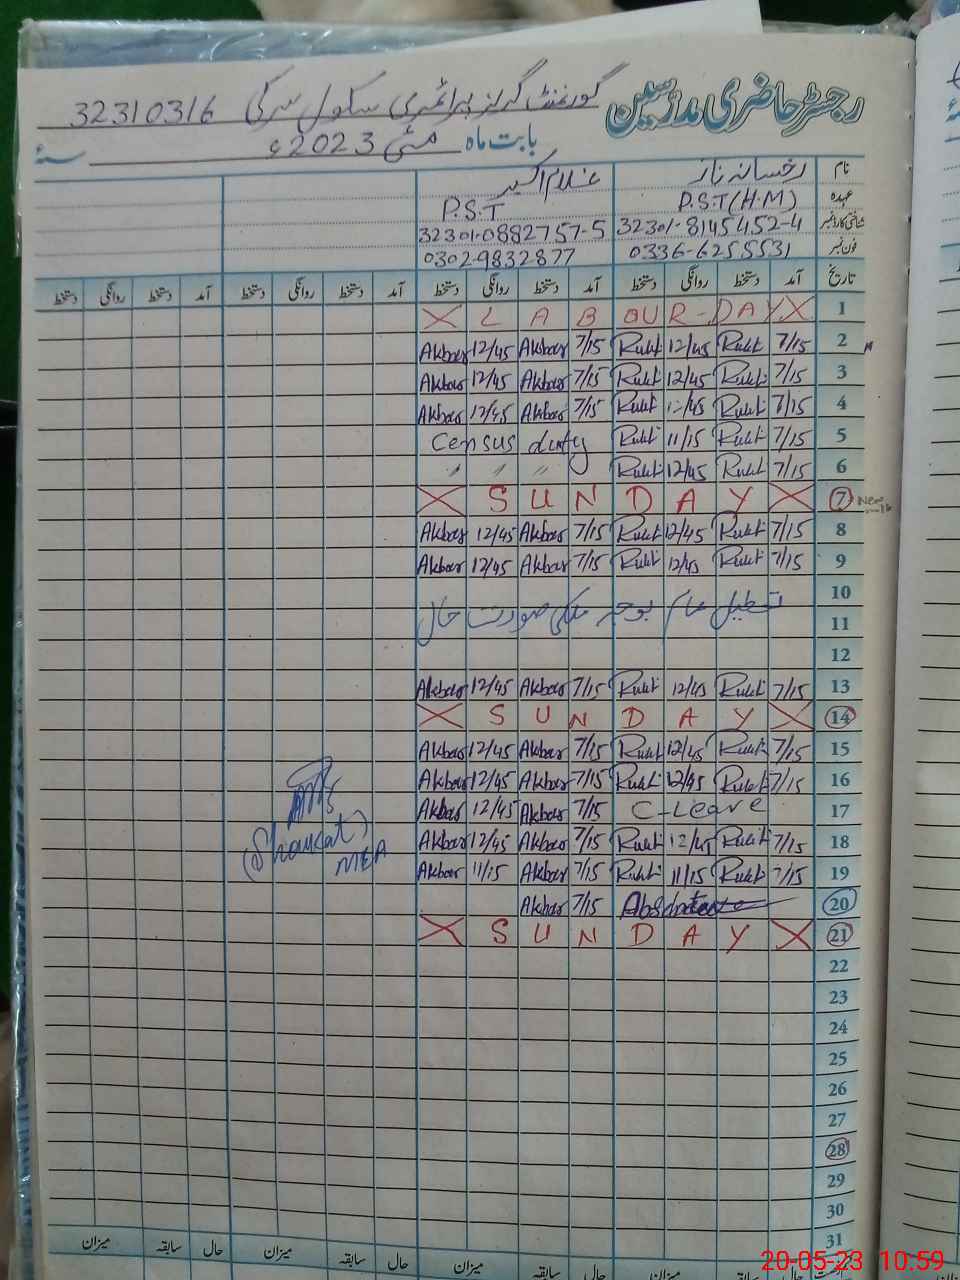 رجسٹر حاضری مدرسین گورنمنٹ گرلز پرائمری سکول سرکی 32310316
بابت ماہ مئی 2023ء سنۂ
نام رخسانہ ناز غلام اکبر
عہدہ P.S.T (H.M) P.S.T
شناختی کارڈ نمبر 32301-8145452-4 32301-0882757-5
فون نمبر 0336-6255531 0302-9832877
تاریخ آمد دستخط روانگی دستخط آمد دستخط روانگی دستخط آمد دستخط روانگی دستخط آمد دستخط روانگی دستخط
X L A B OUR-DAY X 1
Akbar 12/45 Akbar 7/15 Rukh 12/45 Rukh 7/15 2
Akbar 12/45 Akbar 7/15 Rukh 12/45 Rukh 7/15 3
Akbar 12/45 Akbar 7/15 Rukh 12/45 Rukh 7/15 4
Census duty Rukh 11/15 Rukh 7/15 5
〃 〃 〃 Rukh 12/45 Rukh 7/15 6
X S U N D A Y X 7
Akbar 12/45 Akbar 7/15 Rukh 12/45 Rukh 7/15 8
Akbar 12/45 Akbar 7/15 Rukh 12/45 Rukh 7/15 9
10
تعطیل عام بوجہ ملکی صورت حال 11
12
Akbar 12/45 Akbar 7/15 Rukh 12/45 Rukh 7/15 13
X S U N D A Y X 14
Akbar 12/45 Akbar 7/15 Rukh 12/45 Rukh 7/15 15
Akbar 12/45 Akbar 7/15 Rukh 12/45 Rukh 7/15 16
Akbar 12/45 Akbar 7/15 C-Leave 17
Akbar 12/45 Akbar 7/15 Rukh 12/45 Rukh 7/15 18
Akbar 11/15 Akbar 7/15 Rukh 11/15 Rukh 7/15 19
(Shaukat)
MEA
Akbar 7/15 20
X S U N D A Y X 21
22
23
24
25
26
27
28
29
30
31
حال سابقہ میزان حال سابقہ میزان حال سابقہ میزان
20-05-23 10:59